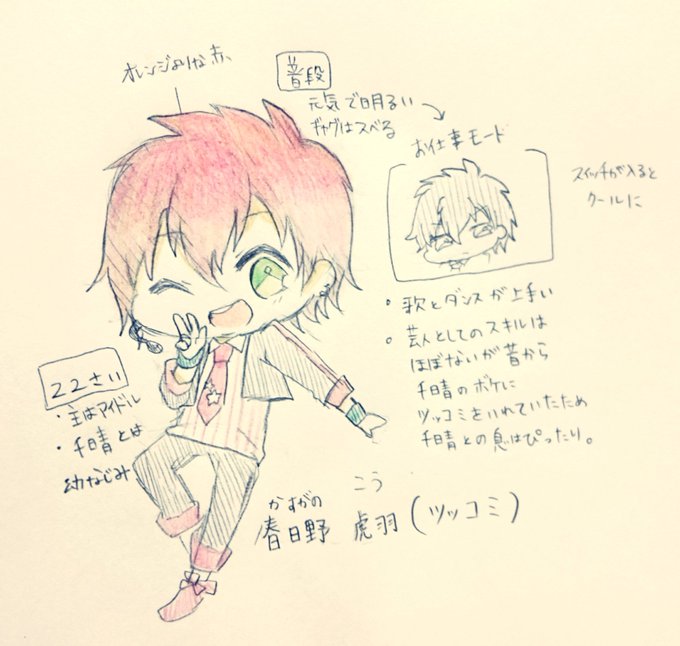 オレンジよりな赤、
普段
元気で明るい
ギャグはスベる
お仕事モード
スイッチが入ると
クールに
・歌とダンスが上手い
・芸人としてのスキルは
ほぼないが昔から
千晴のボケに
ツッコミをいれていたため
千晴との息はぴったり。
22さい
・主はアイドル
・千晴とは
幼なじみ
かすがの こう
春日野 虎羽(ツッコミ)